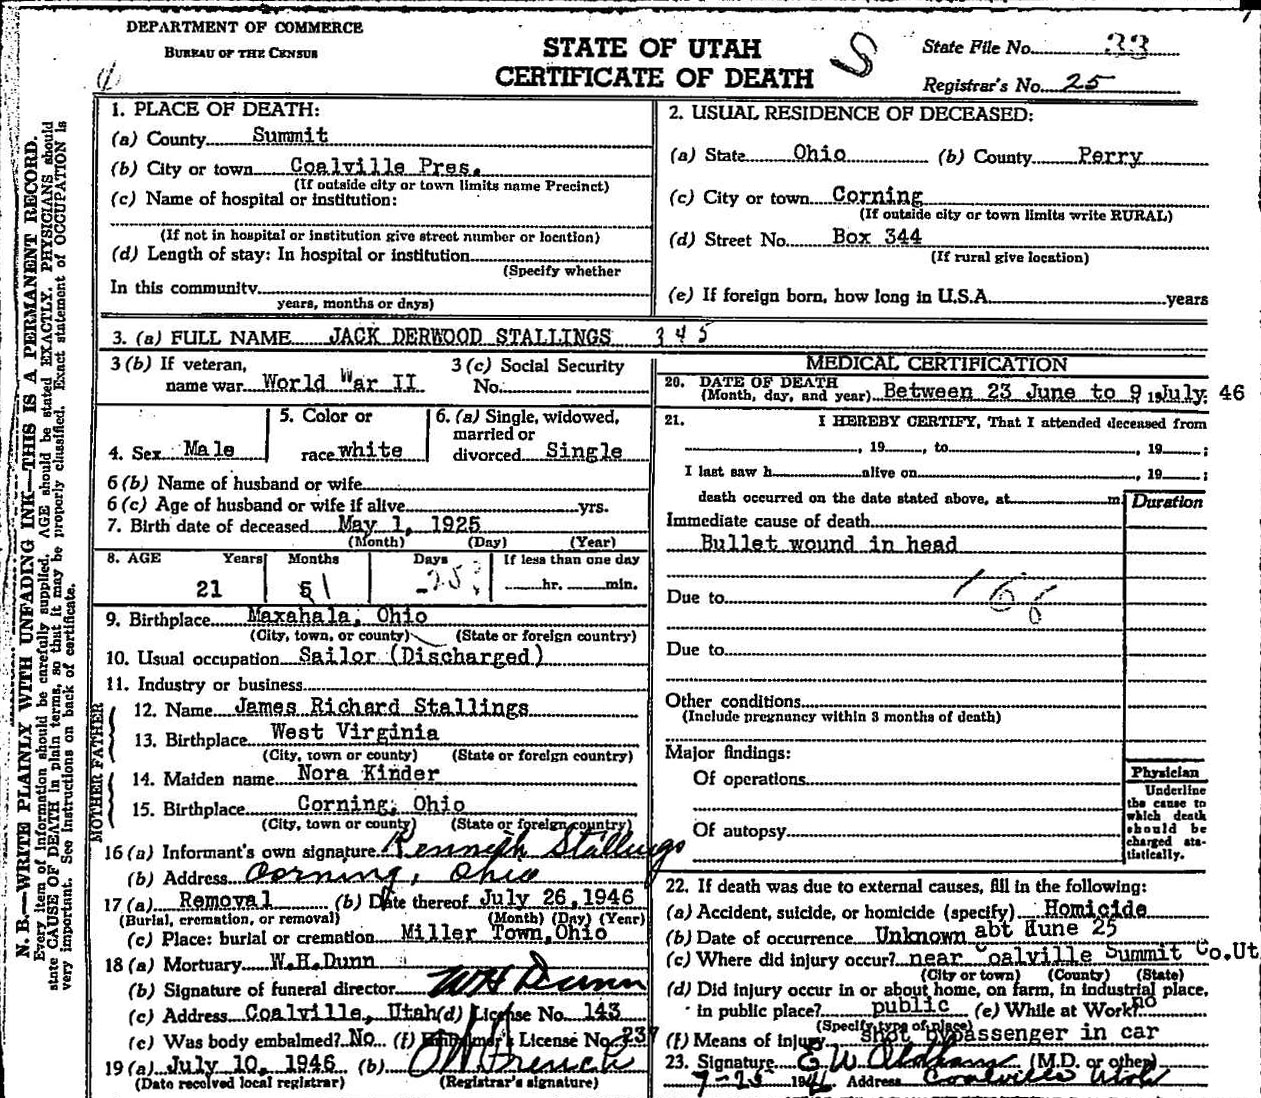 DEPARTMENT OF COMMERCE
BUREAU OF THE CENSUS
STATE OF UTAH
CERTIFICATE OF DEATH
S
State File No. 33
Registrar's No. 25
N. B.—WRITE PLAINLY WITH UNFADING INK—THIS IS A PERMANENT RECORD.
Every item of information should be carefully supplied. AGE should be stated EXACTLY. PHYSICIANS should
state CAUSE OF DEATH in plain terms, so that it may be properly classified. Exact statement of OCCUPATION is
very important. See instructions on back of certificate.
1. PLACE OF DEATH:
(a) County Summit
(b) City or town Coalville Pres.
(If outside city or town limits name Precinct)
(c) Name of hospital or institution:
(If not in hospital or institution give street number or location)
(d) Length of stay: In hospital or institution
(Specify whether
In this community
years, months or days)
2. USUAL RESIDENCE OF DECEASED:
(a) State Ohio (b) County Perry
(c) City or town Corning
(If outside city or town limits write RURAL)
(d) Street No. Box 344
(If rural give location)
(e) If foreign born, how long in U.S.A. years
3. (a) FULL NAME JACK DERWOOD STALLINGS 345
3 (b) If veteran, name war World War II
3 (c) Social Security No.
4. Sex Male
5. Color or race white
6. (a) Single, widowed, married or divorced Single
6 (b) Name of husband or wife
6 (c) Age of husband or wife if alive yrs.
7. Birth date of deceased May 1, 1925
(Month) (Day) (Year)
8. AGE Years Months Days If less than one day
21 1 25? hr. min.
9. Birthplace Maxahala, Ohio
(City, town, or county) (State or foreign country)
10. Usual occupation Sailor (Discharged)
11. Industry or business
FATHER
12. Name James Richard Stallings
13. Birthplace West Virginia
(City, town or county) (State or foreign country)
MOTHER
14. Maiden name Nora Kinder
15. Birthplace Corning, Ohio
(City, town or county) (State or foreign country)
16 (a) Informant's own signature Kenneth Stallings
(b) Address Corning, Ohio
17 (a) Removal (b) Date thereof July 26, 1946
(Burial, cremation, or removal) (Month) (Day) (Year)
(c) Place: burial or cremation Miller Town, Ohio
18 (a) Mortuary W.H.Dunn
(b) Signature of funeral director WH Dunn
(c) Address Coalville, Utah (d) License No. 143
(e) Was body embalmed? No (f) Embalmer's License No. 237
19 (a) July 10, 1946 (b)
(Date received local registrar) (Registrar's signature)
MEDICAL CERTIFICATION
20. DATE OF DEATH
(Month, day, and year) Between 23 June to 9 19July, 46
21. I HEREBY CERTIFY, That I attended deceased from
, 19 , to , 19 ;
I last saw h alive on , 19 ;
death occurred on the date stated above, at m.
Duration
Immediate cause of death
Bullet wound in head
Due to 166
Due to
Other conditions
(Include pregnancy within 3 months of death)
Major findings:
Of operations
Of autopsy
Physician
Underline
the cause to
which death
should be
charged sta-
tistically.
22. If death was due to external causes, fill in the following:
(a) Accident, suicide, or homicide (specify) Homicide
(b) Date of occurrence Unknown abt June 25
(c) Where did injury occur? near Coalville Summit Co.Ut
(City or town) (County) (State)
(d) Did injury occur in or about home, on farm, in industrial place,
in public place? public (e) While at Work? no
(Specify type of place)
(f) Means of injury shot by passenger in car
23. Signature E W Oldham (M.D. or other)
7-25 1946 Address Coalville Utah